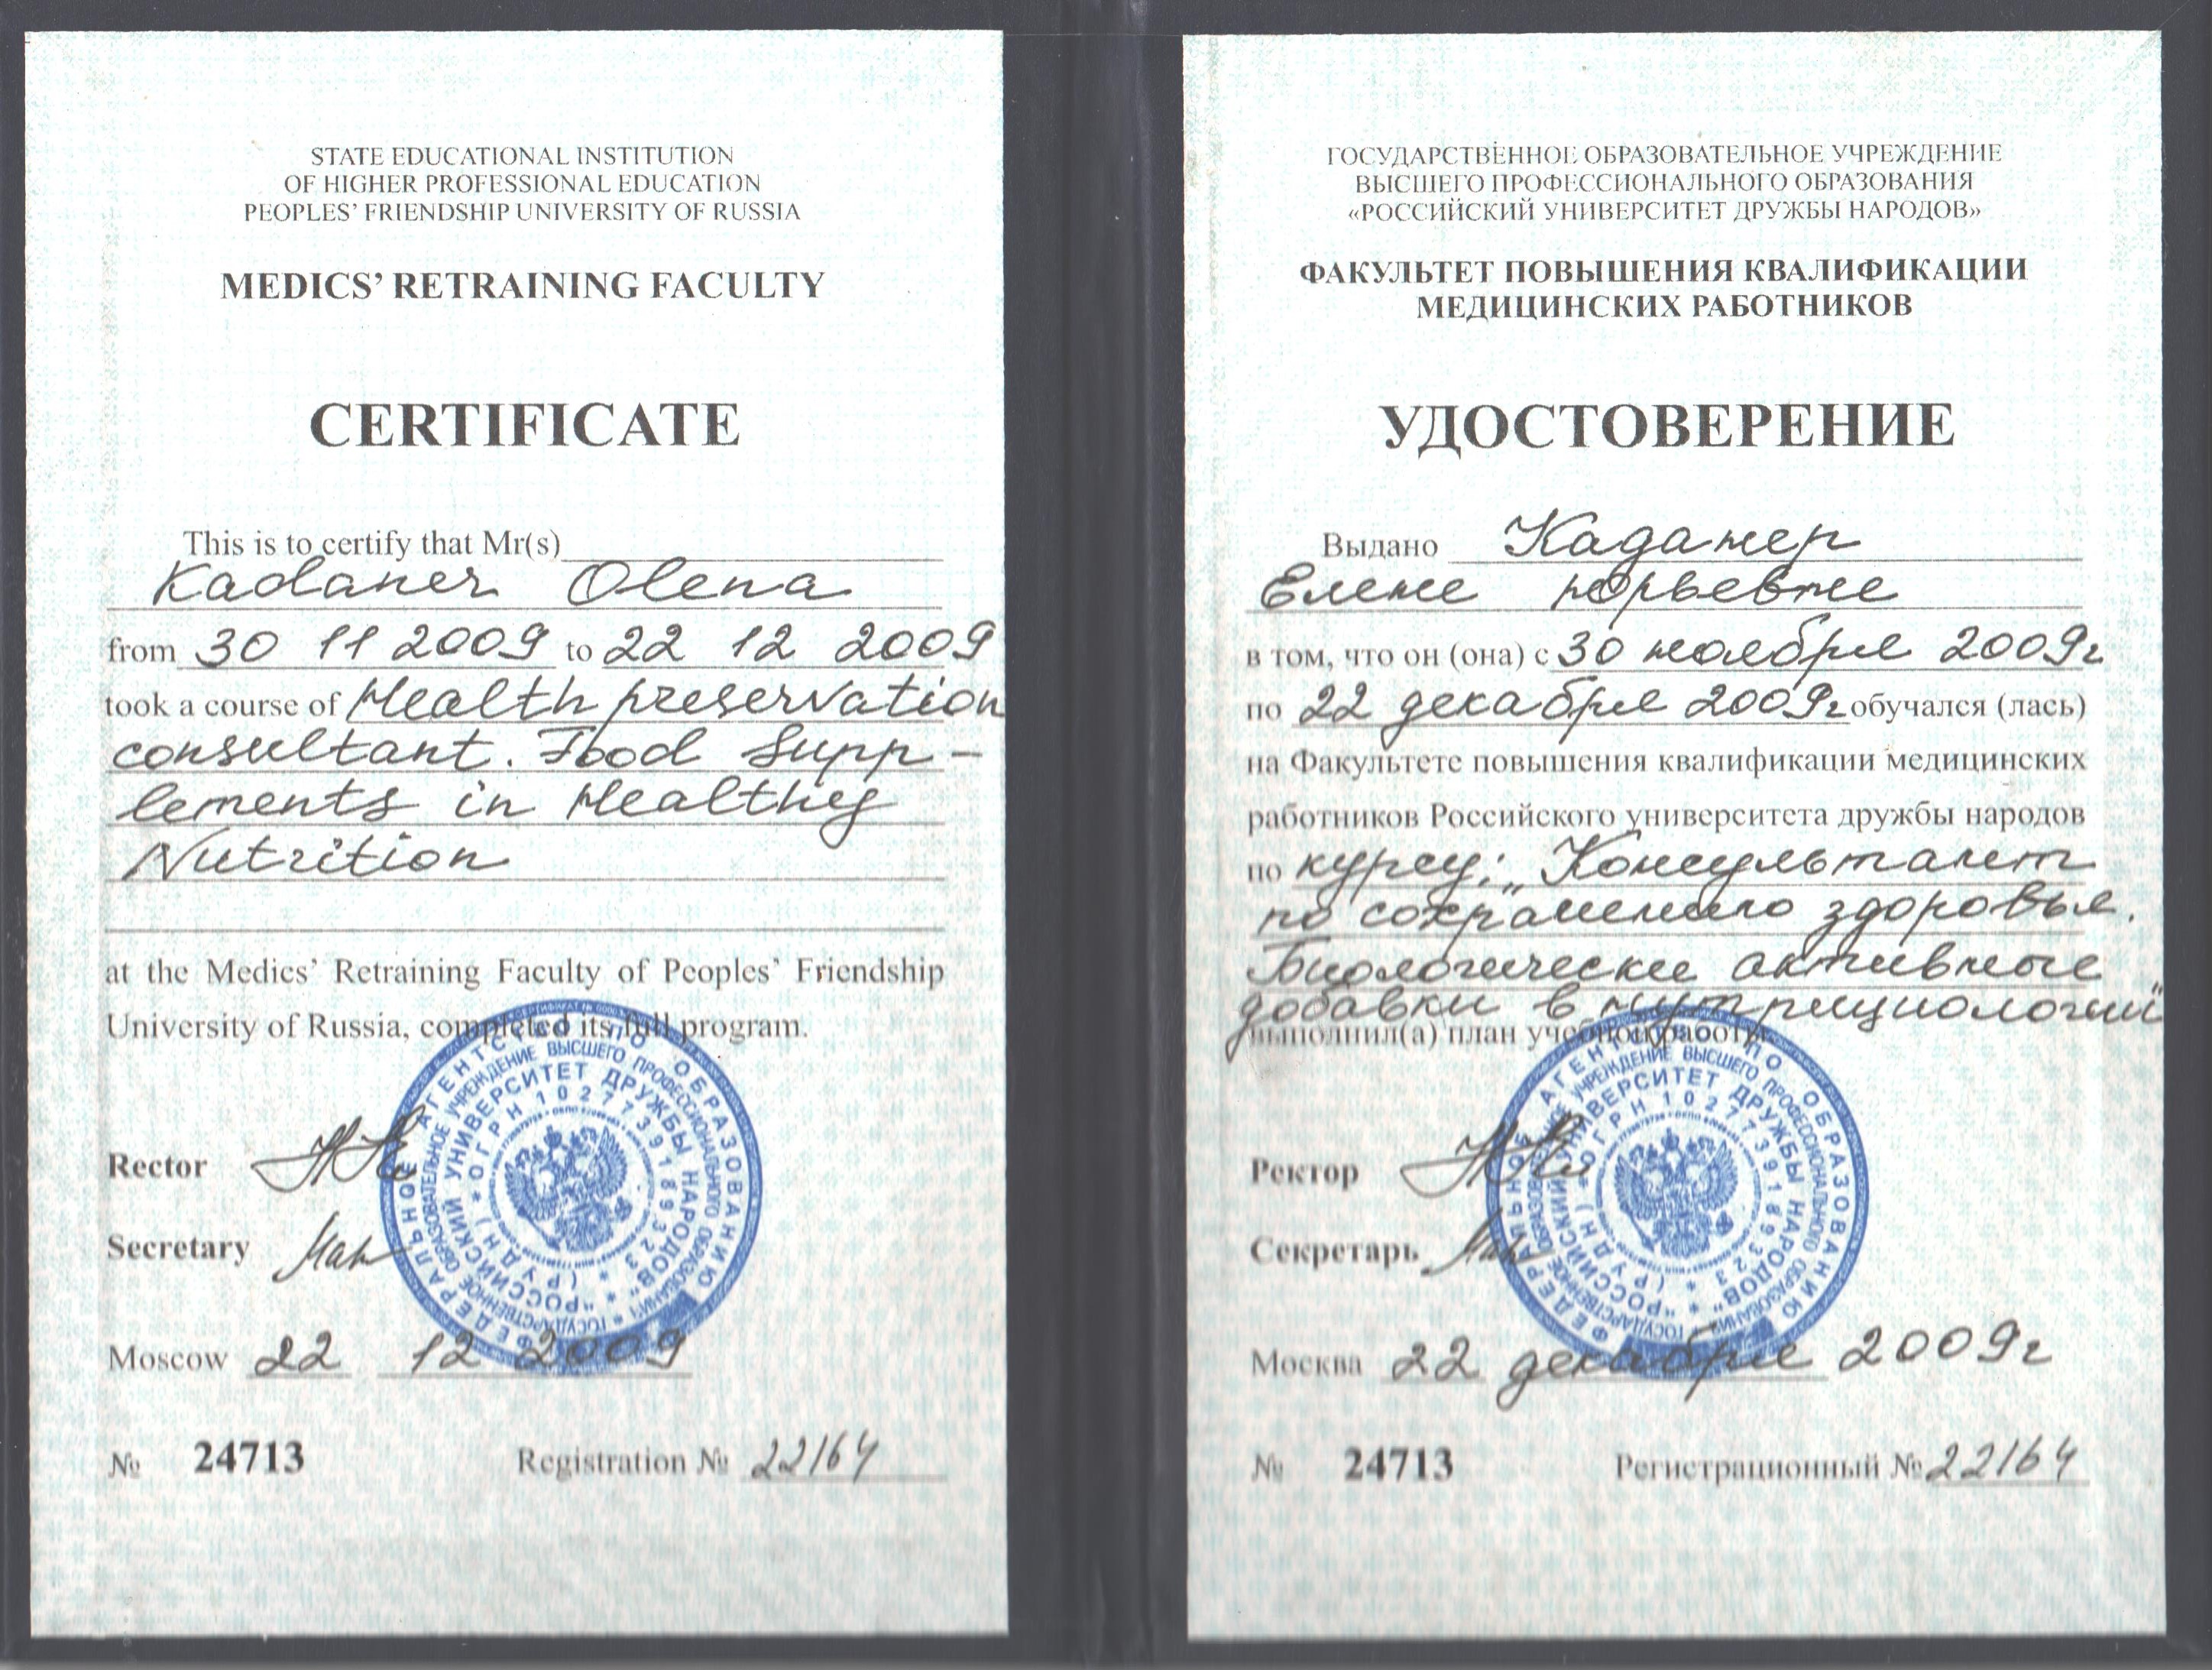 STATE EDUCATIONAL INSTITUTION
OF HIGHER PROFESSIONAL EDUCATION
PEOPLES' FRIENDSHIP UNIVERSITY OF RUSSIA
MEDICS' RETRAINING FACULTY
CERTIFICATE
This is to certify that Mr(s)
Kadaner Olena
from 30 11 2009 to 22 12 2009
took a course of Health preservation
consultant. Food Supp-
lements in Healthy
Nutrition
at the Medics' Retraining Faculty of Peoples' Friendship
University of Russia, completed its full program.
Rector
Secretary
Moscow 22 12 2009
№ 24713 Registration № 22164
ФЕДЕРАЛЬНОЕ АГЕНТСТВО ПО ОБРАЗОВАНИЮ
ГОСУДАРСТВЕННОЕ ОБРАЗОВАТЕЛЬНОЕ УЧРЕЖДЕНИЕ ВЫСШЕГО ПРОФЕССИОНАЛЬНОГО ОБРАЗОВАНИЯ
"РОССИЙСКИЙ УНИВЕРСИТЕТ ДРУЖБЫ НАРОДОВ"
(РУДН) * ОГРН 1027739189323 *
ГОСУДАРСТВЕННОЕ ОБРАЗОВАТЕЛЬНОЕ УЧРЕЖДЕНИЕ
ВЫСШЕГО ПРОФЕССИОНАЛЬНОГО ОБРАЗОВАНИЯ
«РОССИЙСКИЙ УНИВЕРСИТЕТ ДРУЖБЫ НАРОДОВ»
ФАКУЛЬТЕТ ПОВЫШЕНИЯ КВАЛИФИКАЦИИ
МЕДИЦИНСКИХ РАБОТНИКОВ
УДОСТОВЕРЕНИЕ
Выдано Каданер
Елене Юрьевне
в том, что он (она) с 30 ноября 2009г
по 22 декабря 2009г обучался (лась)
на Факультете повышения квалификации медицинских
работников Российского университета дружбы народов
по курсу: „Консультант
по сохранению здоровья.
Биологически активные
добавки в нутрициологии"
выполнил(а) план учебной работы.
Ректор
Секретарь
Москва 22 декабря 2009г
№ 24713 Регистрационный № 22164
ФЕДЕРАЛЬНОЕ АГЕНТСТВО ПО ОБРАЗОВАНИЮ
ГОСУДАРСТВЕННОЕ ОБРАЗОВАТЕЛЬНОЕ УЧРЕЖДЕНИЕ ВЫСШЕГО ПРОФЕССИОНАЛЬНОГО ОБРАЗОВАНИЯ
"РОССИЙСКИЙ УНИВЕРСИТЕТ ДРУЖБЫ НАРОДОВ"
(РУДН) * ОГРН 1027739189323 *